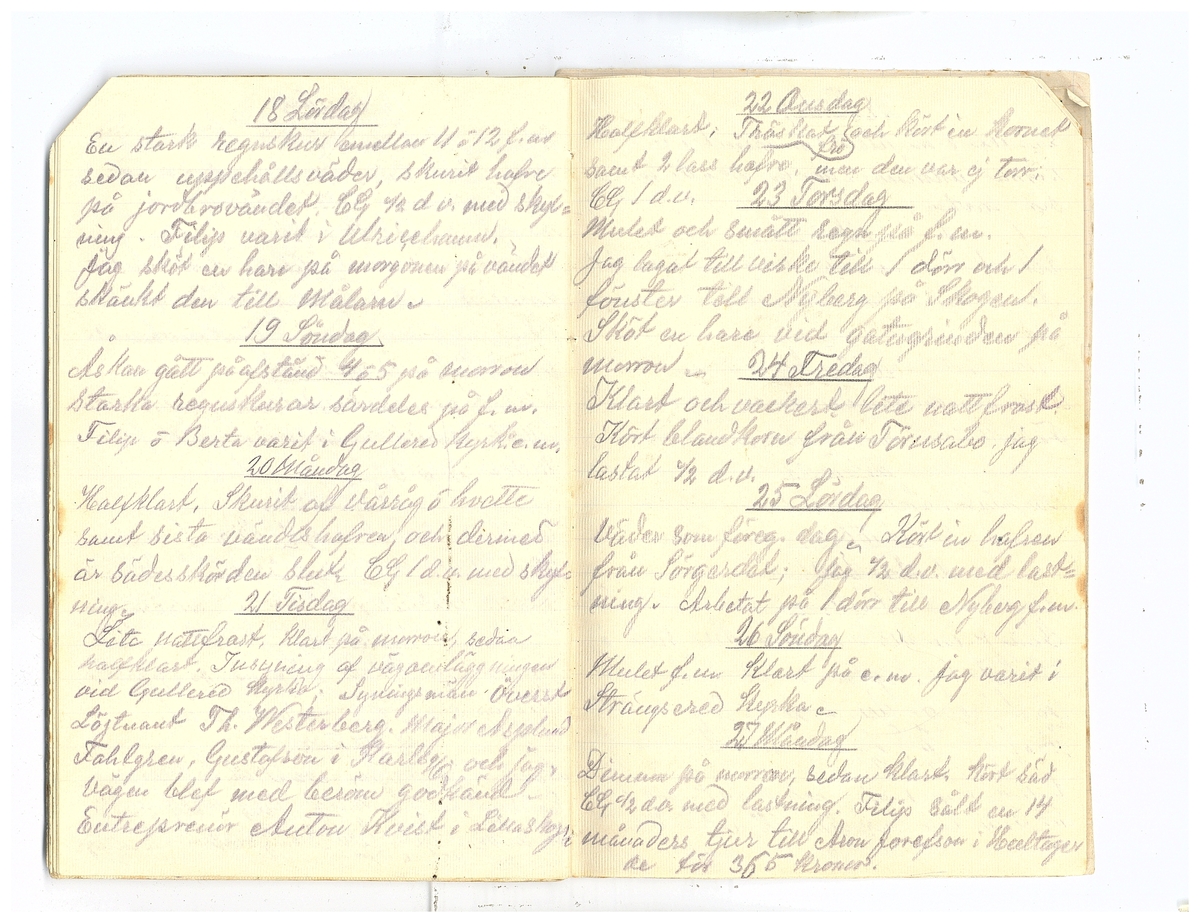 18 Lördag
En stark regnskur emellan 11 o 12 f.m
sedan uppehållsväder, skurit hafre
på jordbrovändet. CG 1/2 d.v. med skyl=
ning. Filip varit i Ulricehamn.
Jag sköt en hare på morgonen på vändet
skänkt den till Målarn.
19 Söndag
Åskan gått på afstånd 4 o 5 på morron
starka regnskurar särdeles på f.m.
Filip o Berta varit i Gullered kyrk e.m.
20 Måndag
Halfklart. Skurit af vårråg o hvete
samt sista vändtshafren, och dermed
är sädesskörden slut. CG 1 d.v. med skyl-
ning.
21 Tisdag
Lite nattfrost, klart på morron, sedan
halfklart. Insyning af vägomläggningen
vid Gullered Kyrka. Syningsmän Överst
Löjtnant Th. Westerberg. Major Asplund
Fahlgren, Gustafson i Karlsg och jag.
Vägen blef med beröm godkänd!
Entreprenör Anton Kvist i Limaskog.
22 Onsdag
Halfklart; Tröskat och kört in kornet
frö
samt 2 lass hafre, men den var ej torr.
CG 1 d.v.
23 Torsdag
Mulet och smått regn på f.m.
Jag lagat till virke till 1 dörr och 1
fönster till Nyberg på Skogen.
Sköt en hare vid gatugrinden på
morron
24 Fredag
Klart och vackert lite nattfrost
Kört blandkorn från Torusabo. jag
lastat 1/2 d.v.
25 Lördag
Väder som föreg. dag. Kört in hafren
från Sörgerdet; jag 1/2 d.v. med last=
ning. Arbetat på 1 dörr till Nyberg f.m.
26 Söndag
Mulet f.m Klart på e.m. Jag varit i
Strängsered Kyrka
27 Måndag
Dimma på morron, sedan klart. Kört säd
CG 1/2 d.v. med lastning. Filip sålt en 14
månaders tjur till Aron Josefson i Haltager
de för 365 kronor.